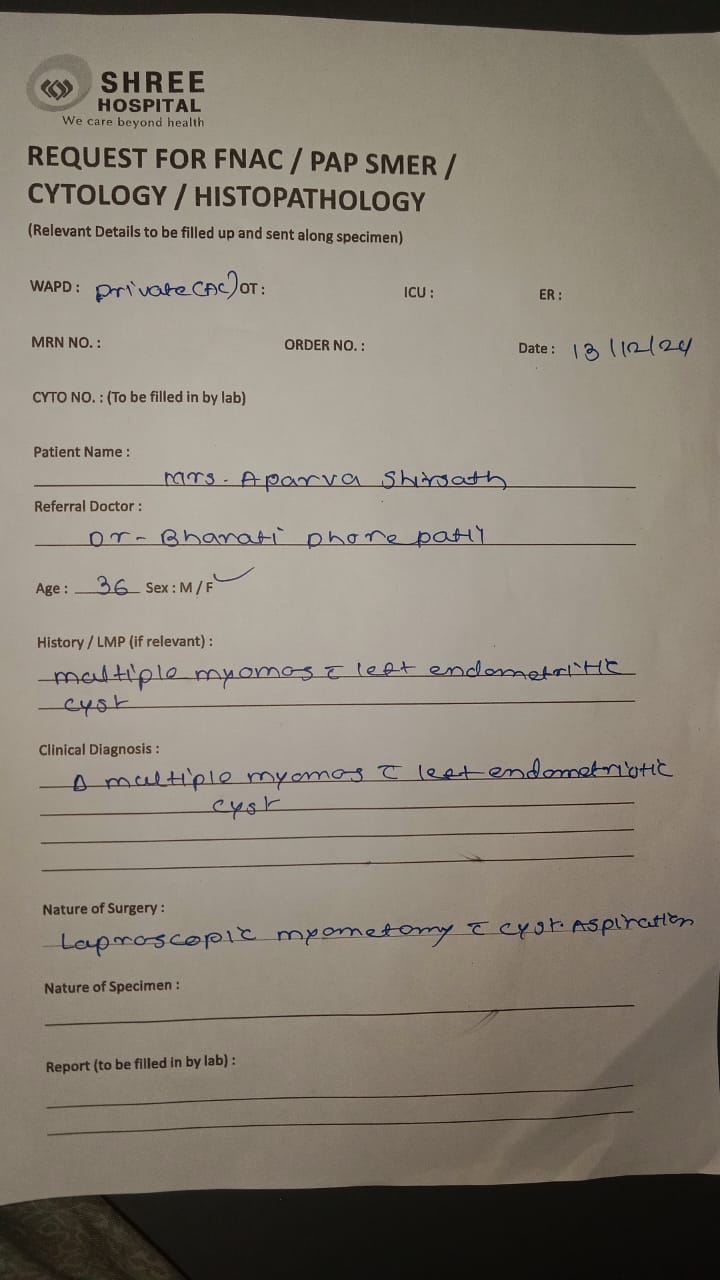 SHREE
HOSPITAL
We care beyond health
REQUEST FOR FNAC / PAP SMER /
CYTOLOGY / HISTOPATHOLOGY
(Relevant Details to be filled up and sent along specimen)
WAPD : private (AC) OT : ICU : ER :
MRN NO. : ORDER NO. : Date : 13/12/24
CYTO NO. : (To be filled in by lab)
Patient Name :
Mrs. Aparva Shirsath
Referral Doctor :
Dr - Bharati Dhore patil
Age : 36 Sex : M / F ✓
History / LMP (if relevant) :
multiple myomas c̄ left endometritic
cyst
Clinical Diagnosis :
Δ multiple myomas c̄ left endometriotic
cyst
Nature of Surgery :
Laproscopic myometomy c̄ cyst. Aspiration
Nature of Specimen :
Report (to be filled in by lab) :